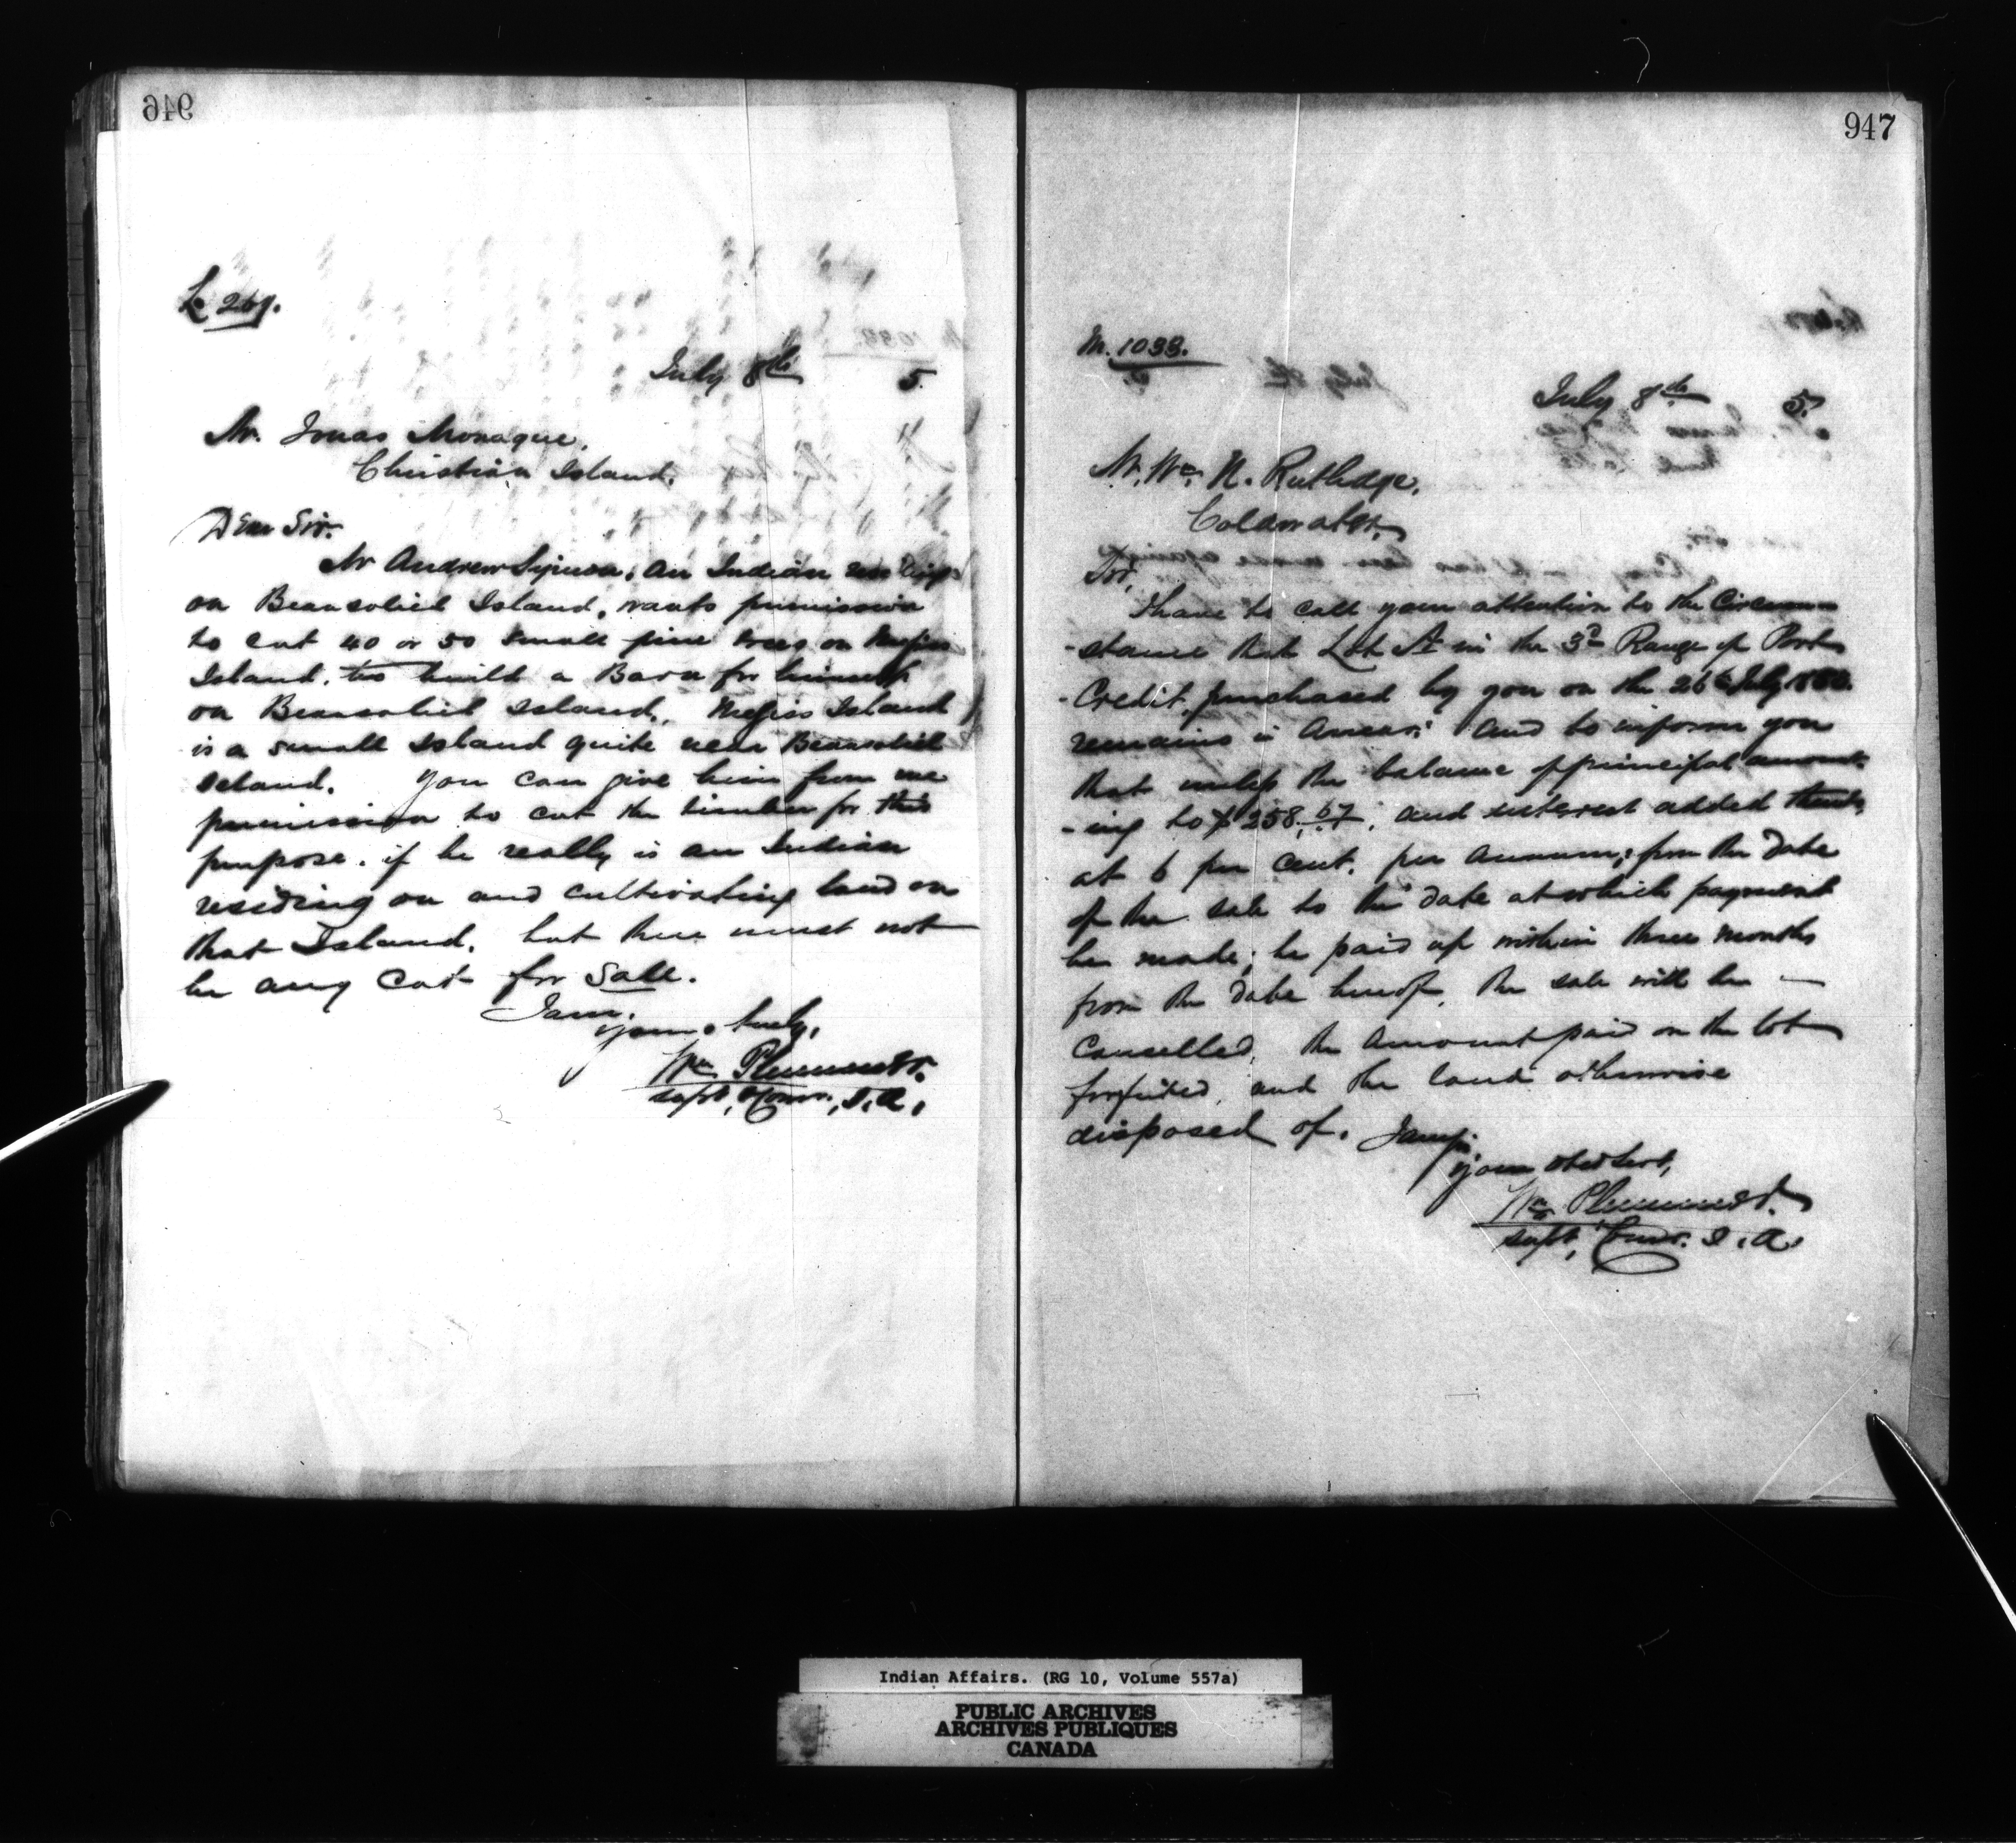 946
L 269.
July 8th 5.
Mr. Jonas Monague,
Christian Island.
Dear Sir.
Mr Andrew , an Indian
on Beausoliel Island, wants permission
to cut 40 or 50 small pine trees on
Island, to build a Barn for himself
on Beausoliel Island, Island
is a small Island quite near Beausoliel
Island. You can give him from me
permission to cut the timber for this
purpose. if he really is an Indian
residing on and cultivating land on
that Island, but there must not
be any cut for Sale.
I am,
yours truly,
Wm Plummer.
Supt, & Comr., I. A.,
947
M. 1033.
July 8th 5.
Mr. Wm. N. Rutledge,
Coldwater,
Sir,
I have to call your attention to the Circum
-stance that Lot A in the 3d Range of Port
-Credit, purchased by you on the 26th July
remains in Arrear; and to inform you
that unless the balance of principal amount-
-ing to $258.67, and interest added
at 6 per cent. per annum, from the date
of the sale to the date at which payment
be made; be paid up within three months
from the date hereof, the sale will be —
Cancelled, the amount paid on the lot
forfeited, and the land otherwise
disposed of. I am Sir
your obed Servt,
Wm Plummer.
Supt, Comr. I. A.
Indian Affairs. (RG 10, Volume 557a)
PUBLIC ARCHIVES
ARCHIVES PUBLIQUES
CANADA